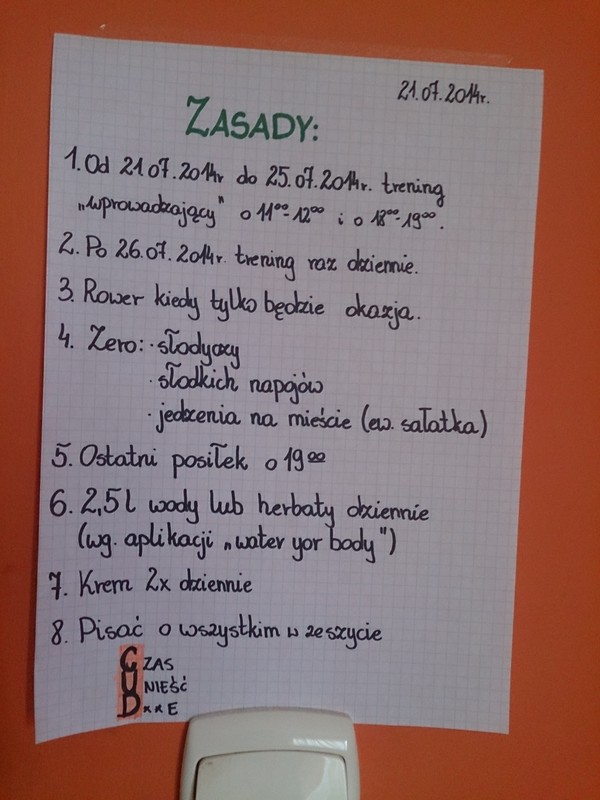 21.07.2014r.
ZASADY:
1. Od 21.07.2014r do 25.07.2014r. trening
„wprowadzający" o 11⁰⁰-12⁰⁰ i o 18⁰⁰-19⁰⁰.
2. Po 26.07.2014r. trening raz dziennie.
3. Rower kiedy tylko będzie okazja.
4. Zero: · słodyczy
· słodkich napojów
· jedzenia na mieście (ew. sałatka)
5. Ostatni posiłek o 19⁰⁰
6. 2,5 l wody lub herbaty dziennie
(wg. aplikacji „water yor body")
7. Krem 2x dziennie
8. Pisać o wszystkim w zeszycie
CZAS
UNIEŚĆ
D**E